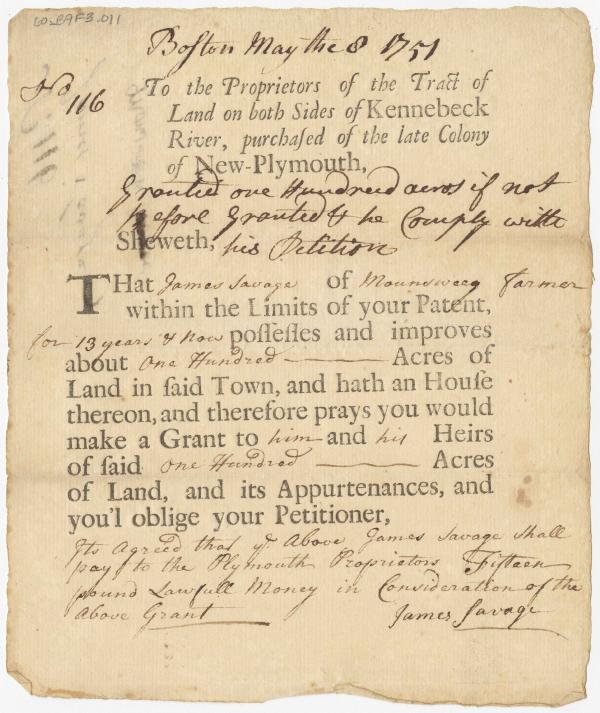 60_BAF3.011
Boston May the 8 1751
No 116
To the Proprietors of the Tract of
Land on both Sides of Kennebeck
River, purchaſed of the late Colony
of New-Plymouth,
Granted one Hundred acros if not
before Granted & he Comply with
Sheweth, his Petition
THat James Savage of Mounsweeg Farmer
within the Limits of your Patent,
for 13 years & now poſſeſſes and improves
about One Hundred Acres of
Land in ſaid Town, and hath an Houſe
thereon, and therefore prays you would
make a Grant to him and his Heirs
of ſaid One Hundred Acres
of Land, and its Appurtenances, and
you'l oblige your Petitioner,
Its Agreed that ye Above James Savage Shall
pay to the Plymouth Proprietors Fifteen
pound Lawfull Money in Consideration of the
Above Grant James Savage